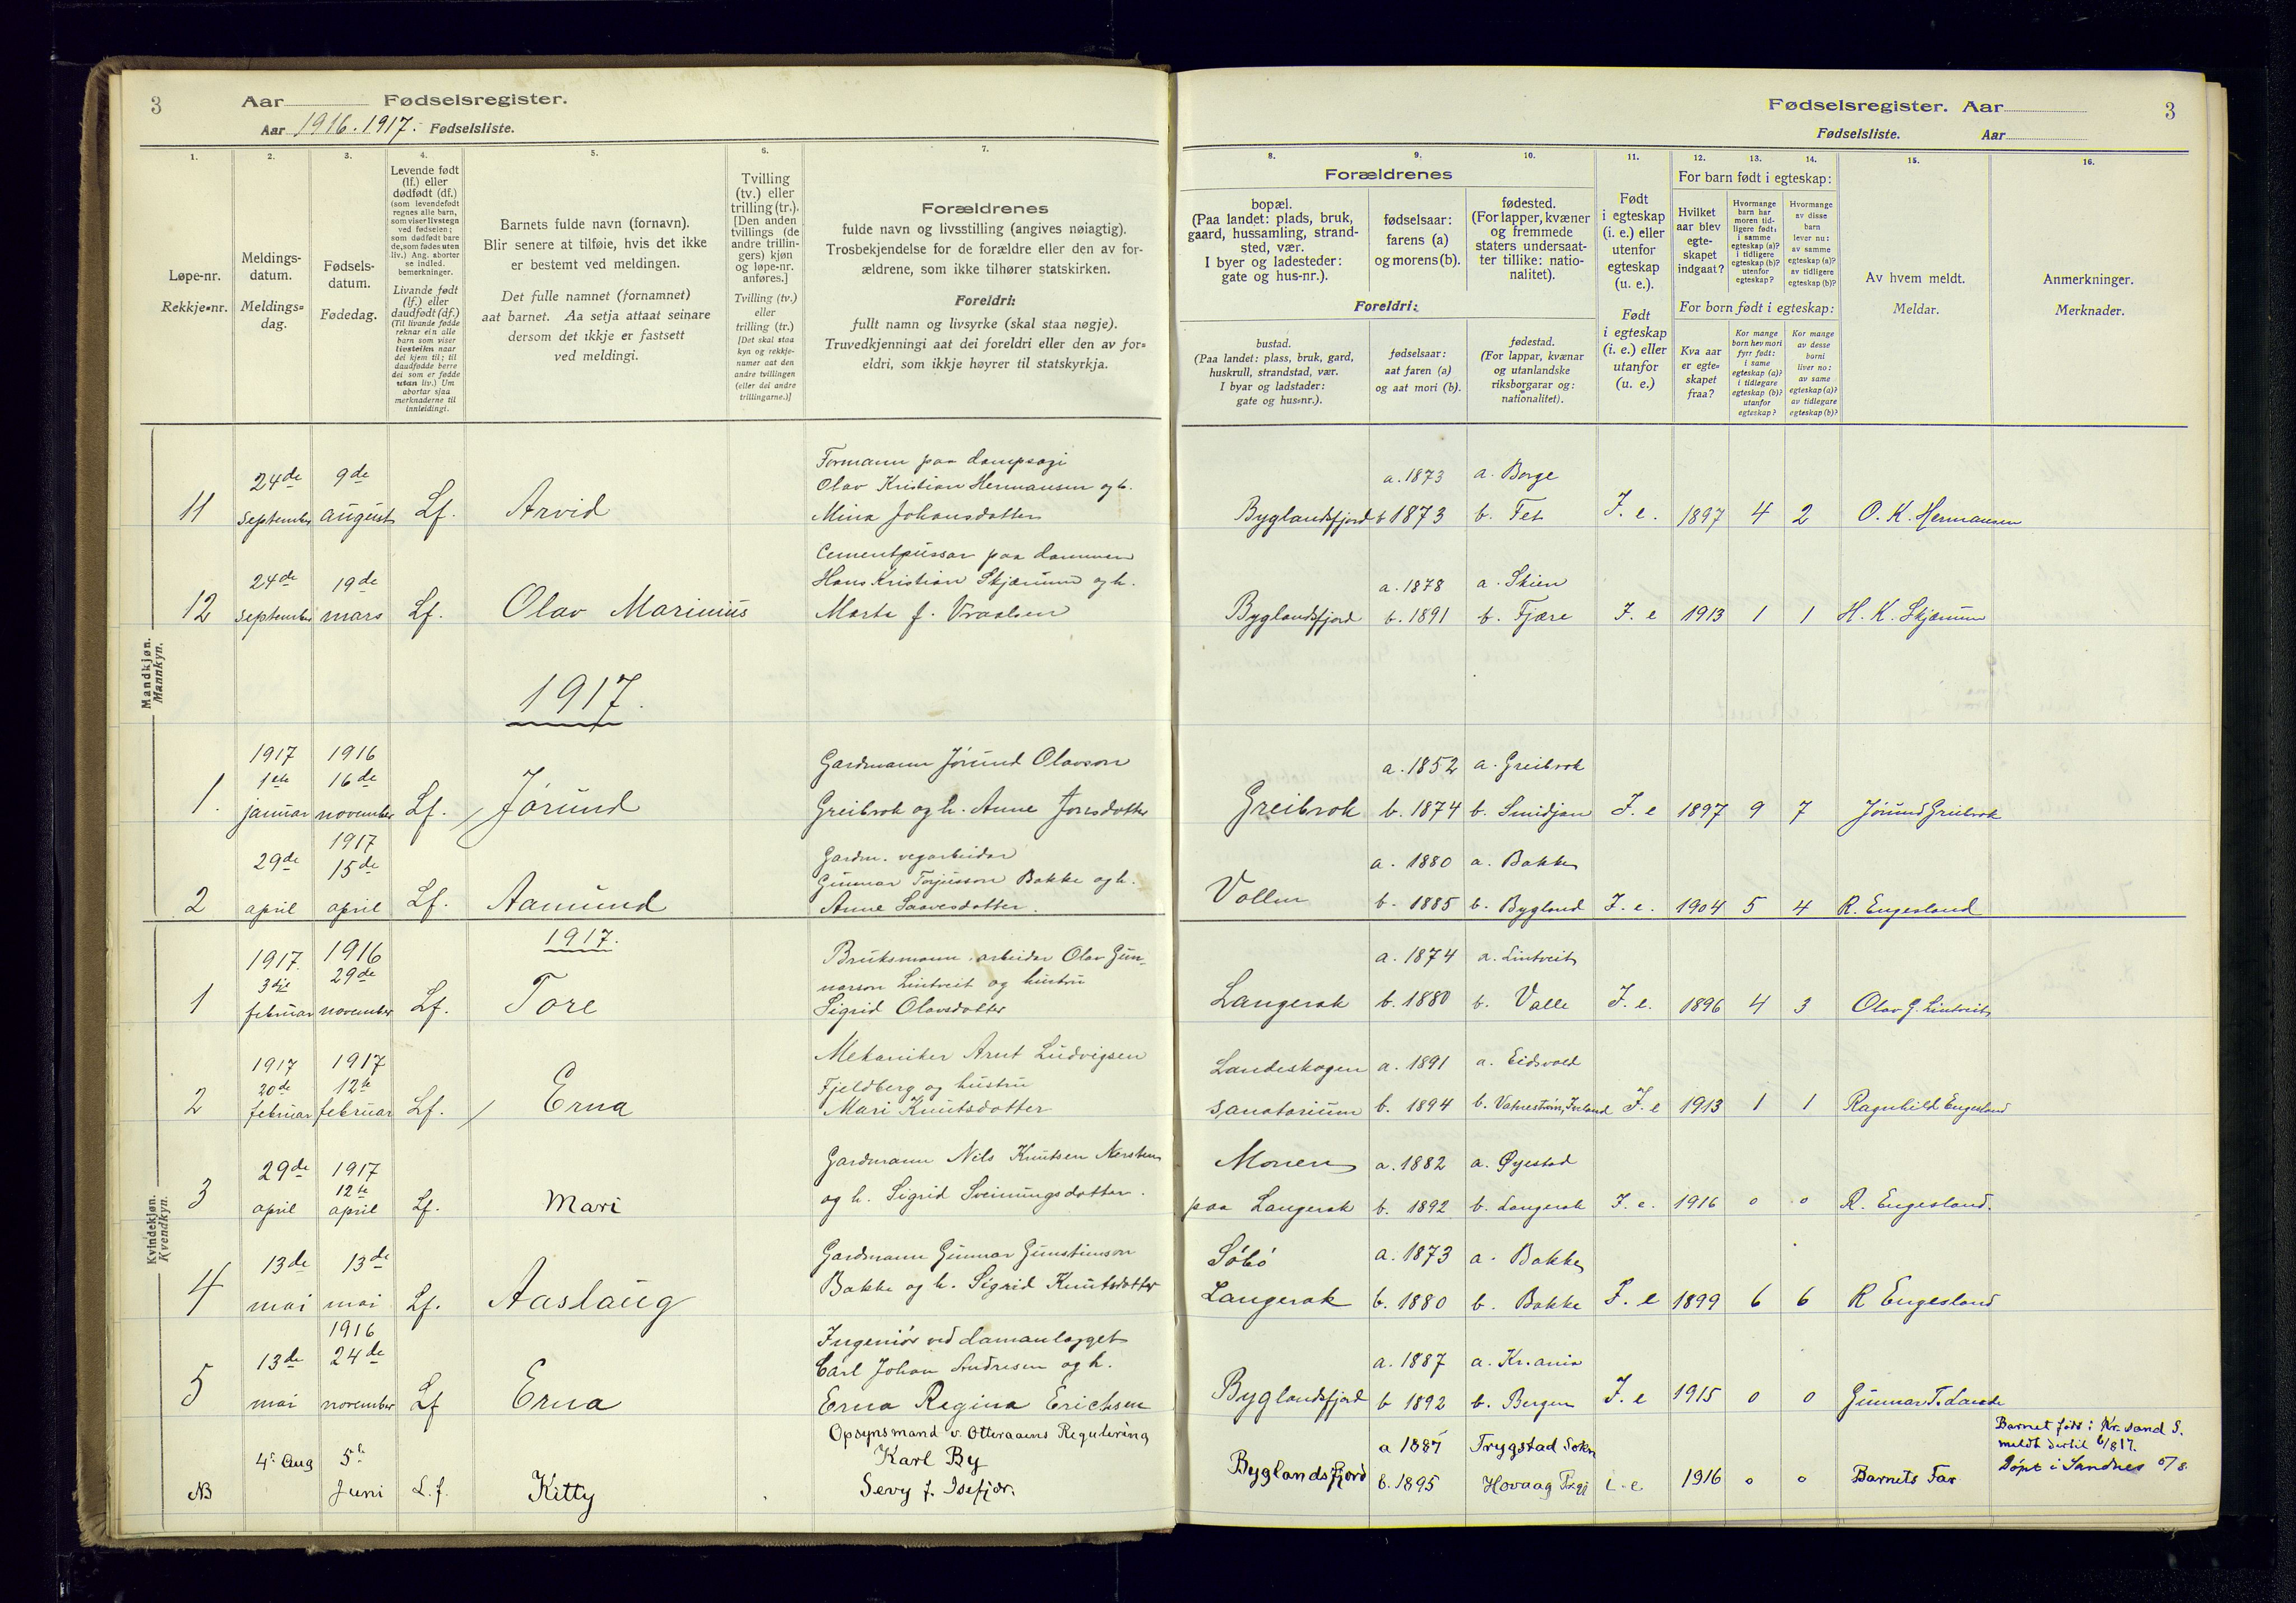 3
Aar Fødselsregister.
Aar 1916. 1917. Fødselsliste.
1.
Løpe-nr.
Rekkje-nr.
2.
Meldings-
datum.
Meldings-
dag.
3.
Fødsels-
datum.
Fødedag.
4.
Levende født
(lf.) eller
dødfødt (df.)
(som levendefødt
regnes alle barn,
som viser livstegn
ved fødselen;
som dødfødt bare
de, som fødes uten
liv.) Ang. aborter
se indled.
bemerkninger.
Livande født
(lf.) eller
daudfødt (df.)
(Til livande fødde
reknar ein alle
barn som viser
livsteikn naar
dei kjem til; til
daudfødde berre
dei som er fødde
utan liv.) Um
abortar sjaa
merknaderne til
innleidingi.
5.
Barnets fulde navn (fornavn).
Blir senere at tilføie, hvis det ikke
er bestemt ved meldingen.
Det fulle namnet (fornamnet)
aat barnet. Aa setja attaat seinare
dersom det ikkje er fastsett
ved meldingi.
6.
Tvilling
(tv.) eller
trilling (tr.).
[Den anden
tvillings (de
andre trillin-
gers) kjøn
og løpe-nr.
anføres.]
Tvilling (tv.)
eller
trilling (tr.)
[Det skal staa
kyn og rekkje-
numer aat den
andre tvillingen
(eller dei andre
trillingarne.)]
7.
Forældrenes
fulde navn og livsstilling (angives nøiagtig).
Trosbekjendelse for de forældre eller den av for-
ældrene, som ikke tilhører statskirken.
Foreldri:
fullt namn og livsyrke (skal staa nøgje).
Truvedkjenningi aat dei foreldri eller den av for-
eldri, som ikkje høyrer til statskyrkja.
Fødselsregister. Aar
3
Fødselsliste. Aar
8.
Forældrenes
bopæl.
(Paa landet: plads, bruk,
gaard, hussamling, strand-
sted, vær.
I byer og ladesteder:
gate og hus-nr.).
Foreldri:
bustad.
(Paa landet: plass, bruk, gard,
huskrull, strandstad, vær.
I byar og ladstader:
gate og hus-nr.).
9.
fødselsaar:
farens (a)
og morens (b).
fødselsaar:
aat faren (a)
og aat mori (b).
10.
fødested.
(For lapper, kvæner
og fremmede
staters undersaat-
ter tillike: natio-
nalitet).
fødestad.
(For lappar, kvænar
og utanlandske
riksborgarar og:
nationalitet).
11.
Født
i egteskap
(i. e.) eller
utenfor
egteskap
(u. e.).
Født
i egteskap
(i. e.) eller
utanfor
egteskap
(u. e.)
12. 13. 14.
For barn født i egteskap:
Hvilket
aar blev
egte-
skapet
indgaat?
Hvormange
barn har
moren tid-
ligere født:
i samme
egteskap (a)?
i tidligere
egteskap (b)?
utenfor
egteskap?
Hvormange
av disse
barn
lever nu:
av samme
egteskap (a)?
av tidligere
egteskap (b)?
For born født i egteskap:
Kva aar
er egte-
skapet
fraa?
Kor mange
born hev mori
fyrr født:
i same
egteskap (a)?
i tidlegare
egteskap (b)?
utanfor
egteskap?
Kor mange
av desse
borni
liver no:
av same
egteskap (a)?
av tidlegare
egteskap (b)?
15.
Av hvem meldt.
Meldar.
16.
Anmerkninger.
Merknader.
Mandkjøn.
Mannkyn.
11 24de september 9de august Lf. Arvid
Formann paa dampsagi
Olav Kristian Hermansen og h.
Mina Johansdotter
Byglandsfjord a. 1873 b 1873 a. Borge b. Fet I. e. 1897 4 2 O. K. Hermansen
12 24de september 19de mars Lf. Olav Marinius
Cementpussar paa dammen
Hans Kristian Skjærum og h.
Marta f. Vraalsen
Byglandsfjord a. 1878 b. 1891 a. Skien b. Fjære I. e 1913 1 1 H. K. Skjærum
1917.
1. 1917 1ste januar 1916 16de november Lf. Jórund
Gardmann Jórund Olavson
Greibrok og h. Anne Jonsdotter
Greibrok a. 1852 b. 1874 a. Greibrok b. Smidjan I. e 1897 9 7 Jórund Greibrok
2 29de april 1917 15de april Lf. Aamund
Gardm. vegarbeidar
Gunnar Torjusson Bakke og h.
Anne Saavesdotter.
Vollen a. 1880 b. 1885 a. Bakke b. Bygland I. e. 1904 5 4 R. Engesland
Kvindekjøn.
Kvendkyn.
1917.
1 1917. 3dje februar 1916 29de november Lf. Tore
Bruksmann, arbeidar Olav Gun-
narson Lintveit og hustru
Sigrid Olavsdotter
Langerak a. 1874 b. 1880 a. Lintveit b. Valle I. e. 1896 4 3 Olav G. Lintveit
2 1917 20de februar 1917 12te februar Lf. Erna
Mekaniker Arnt Ludvigsen
Fjeldberg og hustru
Mari Knutsdotter
Landeskogen
sanatorium a. 1891 b. 1894 a. Eidsvold b. Vatnestrøm, Iveland I. e 1913 1 1 Ragnhild Engesland
3 29de april 1917 12te april Lf. Mari
Gardmann Nils Knutsen Nersten
og h. Sigrid Sveinungsdotter.
Monen
paa Langerak a. 1882 b. 1892 a. Øyestad b. Langerak I. e. 1916 0 0 R. Engesland.
4 13de mai 13de mai Lf. Aaslaug
Gardmann Gunnar Gunstunson
Bakke og h. Sigrid Knutsdotter
Sóbó
Langerak a. 1873 b. 1880 a. Bakke b. Bakke I. e 1899 6 6 R Engesland
5 13de mai 1916 24de november Lf Erna
Ingeniór ved damanlegget
Carl Johan Andresen og h.
Erna Regina Erichsen
Byglandsfjord a. 1887 b 1892 a. Kr.ania b. Bergen I. e 1915 0 0 Gunnar T. Lande
NB 4. Aug 5. Juni L. f. Kitty
Opsynsmand v. Otteraaens Regulering
Karl By
Sevy f. Isefjær.
Byglandsfjord a 1887 b. 1895 Trygstad Sokn Hovaag i. e 1916 0 0 Barnets Far
Barnet født i Kr.sand S.
meldt dertil 6/8 17.
Døpt i Sandnes 5/8.